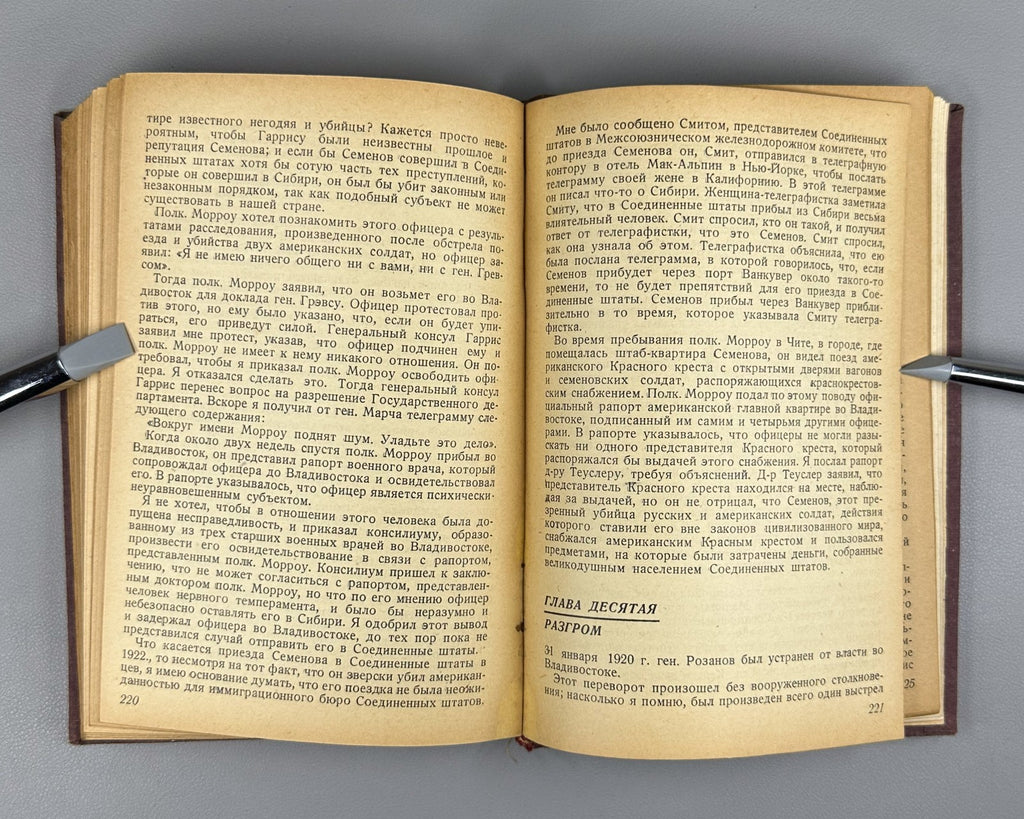 тире известного негодяя и убийцы? Кажется просто неве-
роятным, чтобы Гаррису были неизвестны прошлое и
репутация Семенова; и если бы Семенов совершил в Соеди-
ненных штатах хотя бы сотую часть тех преступлений, ко-
торые он совершил в Сибири, он был бы убит законным или
незаконным порядком, так как подобный субъект не может
существовать в нашей стране.
Полк. Морроу хотел познакомить этого офицера с резуль-
татами расследования, произведенного после обстрела по-
езда и убийства двух американских солдат, но офицер за-
явил: «Я не имею ничего общего ни с вами, ни с ген. Грев-
сом».
Тогда полк. Морроу заявил, что он возьмет его во Вла-
дивосток для доклада ген. Грэвсу. Офицер протестовал про-
тив этого, но ему было указано, что, если он будет упи-
раться, его приведут силой. Генеральный консул Гаррис
заявил мне протест, указав, что офицер подчинен ему и
полк. Морроу не имеет к нему никакого отношения. Он по-
требовал, чтобы я приказал полк. Морроу освободить офи-
цера. Я отказался сделать это. Тогда генеральный консул
Гаррис перенес вопрос на разрешение Государственного де-
партамента. Вскоре я получил от ген. Марча телеграмму сле-
дующего содержания:
«Вокруг имени Морроу поднят шум. Уладьте это дело».
Когда около двух недель спустя полк. Морроу прибыл во
Владивосток, он представил рапорт военного врача, который
сопровождал офицера до Владивостока и освидетельствовал
его. В рапорте указывалось, что офицер является психически-
неуравновешенным субъектом.
Я не хотел, чтобы в отношении этого человека была до-
пущена несправедливость, и приказал консилиуму, образо-
ванному из трех старших военных врачей во Владивостоке,
произвести его освидетельствование в связи с рапортом,
представленным полк. Морроу. Консилиум пришел к заклю-
чению, что не может согласиться с рапортом, представлен-
ным доктором полк. Морроу, но что по его мнению офицер
человек нервного темперамента, и было бы неразумно и
небезопасно оставлять его в Сибири. Я одобрил этот вывод
и задержал офицера во Владивостоке, до тех пор пока не
представился случай отправить его в Соединенные штаты.
Что касается приезда Семенова в Соединенные штаты в
1922., то несмотря на тот факт, что он зверски убил американ-
цев, я имею основание думать, что его поездка не была неожи-
данностью для иммиграционного бюро Соединенных штатов.
220
Мне было сообщено Смитом, представителем Соединенных
штатов в Межсоюзническом железнодорожном комитете, что
до приезда Семенова он, Смит, отправился в телеграфную
контору в отель Мак-Альпин в Нью-Йорке, чтобы послать
телеграмму своей жене в Калифорнию. В этой телеграмме
он писал что-то о Сибири. Женщина-телеграфистка заметила
Смиту, что в Соединенные штаты прибыл из Сибири весьма
влиятельный человек. Смит спросил, кто он такой, и получил
ответ от телеграфистки, что это Семенов. Смит спросил,
как она узнала об этом. Телеграфистка объяснила, что ею
была послана телеграмма, в которой говорилось, что, если
Семенов прибудет через порт Ванкувер около такого-то
времени, то не будет препятствий для его приезда в Сое-
диненные штаты. Семенов прибыл через Ванкувер прибли-
зительно в то время, которое указывала Смиту телегра-
фистка.
Во время пребывания полк. Морроу в Чите, в городе, где
помещалась штаб-квартира Семенова, он видел поезд аме-
риканского Красного креста с открытыми дверями вагонов
и семеновских солдат, распоряжающихся краснокрестов-
ским снабжением. Полк. Морроу подал по этому поводу офи-
циальный рапорт американской главной квартире во Влади-
востоке, подписанный им самим и четырьмя другими офице-
рами. В рапорте указывалось, что офицеры не могли разы-
скать ни одного представителя Красного креста, который
распоряжался бы выдачей этого снабжения. Я послал рапорт
д-ру Теуслеру, требуя объяснений. Д-р Теуслер заявил, что
представитель Красного креста находился на месте, наблю-
дая за выдачей, но он не отрицал, что Семенов, этот пре-
зренный убийца русских и американских солдат, действия
которого ставили его вне законов цивилизованного мира,
снабжался американским Красным крестом и пользовался
предметами, на которые были затрачены деньги, собранные
великодушным населением Соединенных штатов.
ГЛАВА ДЕСЯТАЯ
РАЗГРОМ
31 января 1920 г. ген. Розанов был устранен от власти во
Владивостоке.
Этот переворот произошел без вооруженного столкнове-
ния; насколько я помню, был произведен всего один выстрел
221
25